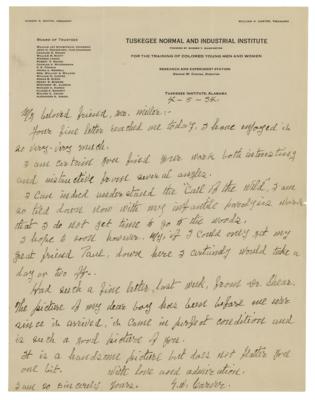 ROBERT R. MOTON, PRINCIPAL
WILLIAM H. CARTER, TREASURER
TUSKEGEE NORMAL AND INDUSTRIAL INSTITUTE
FOUNDED BY BOOKER T. WASHINGTON
FOR THE TRAINING OF COLORED YOUNG MEN AND WOMEN
RESEARCH AND EXPERIMENT STATION
GEORGE W. CARVER, DIRECTOR
TUSKEGEE INSTITUTE, ALABAMA
BOARD OF TRUSTEES
4-5-34
My beloved friend, Mr. Miller:-
Your fine letter reached me today, I have enjoyed it
so very-very much.
I am certain you find your work both interesting
and instructive from several angles.
I can indeed understand the "Call of the Wild", I am
so tied down now with my infantile paralysis work
that I do not get time to go to the woods.
I hope to soon however. My, if I could only get my
great friend Paul, down here I certainly would take a
day or two off.
Had such a fine letter, last week, from Dr.
The picture of my dear boy has been before me ever
since it arrived, it came in perfect condition and
is such a good picture of you.
It is a handsome picture but does not flatter you
one bit. With love and admiration.
I am so sincerely yours. G.W. Carver.